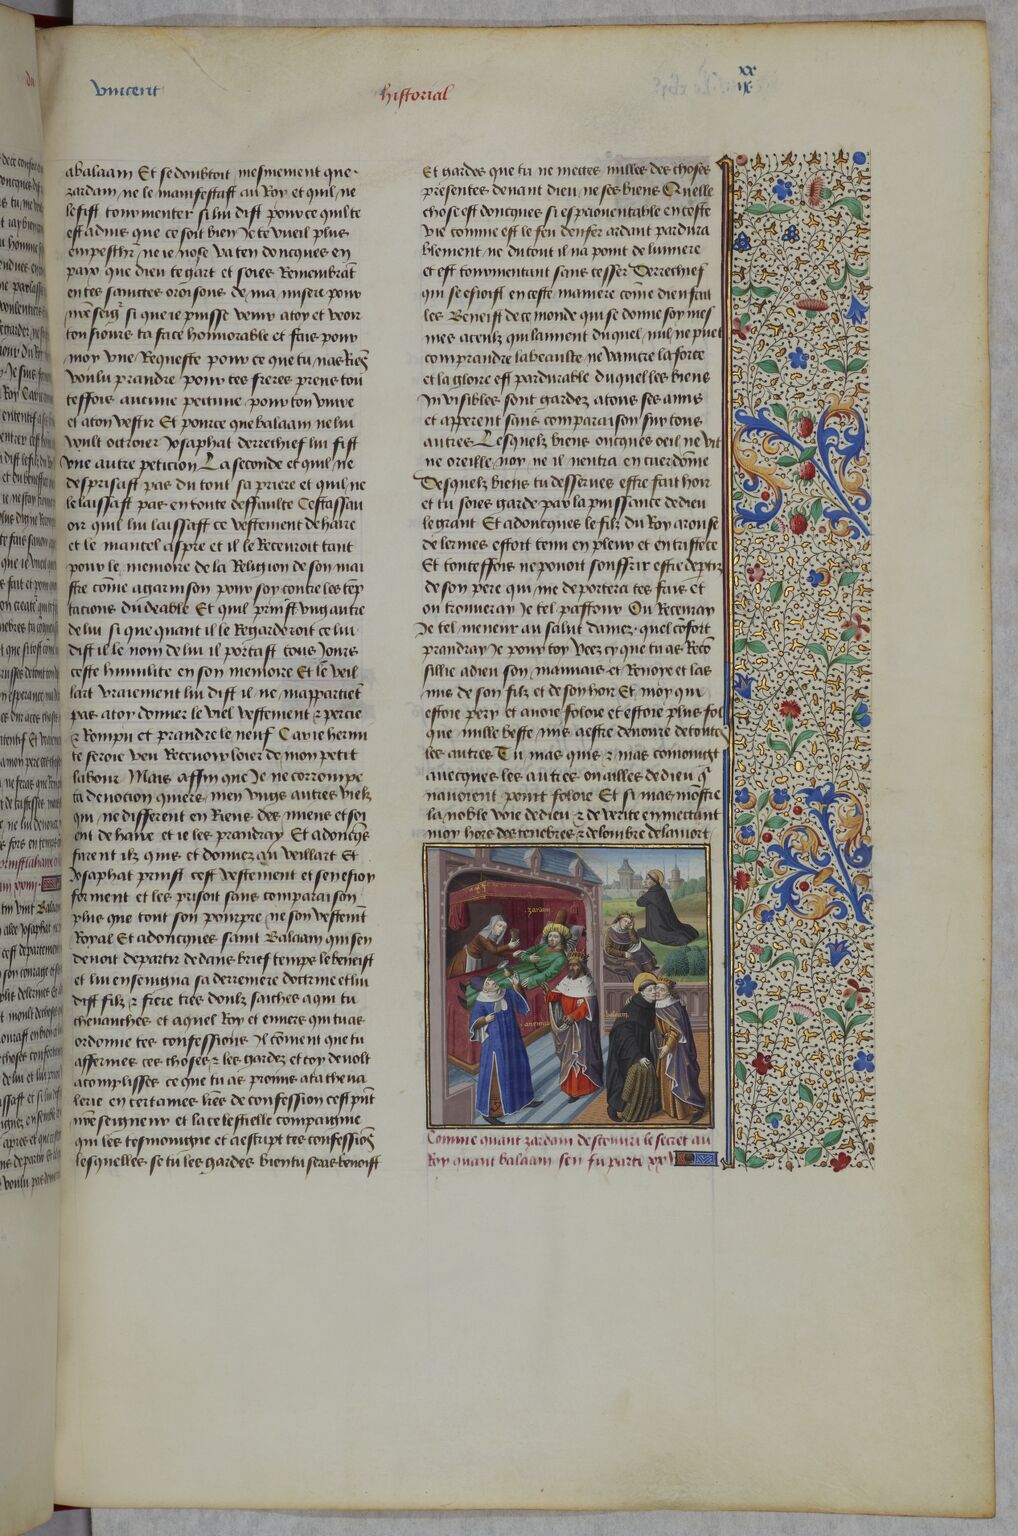 Vincent
historial
xx
ix
abalaam Et se doubtoit mesmement que
zardam ne le manifestast au Roy et quil ne
le fist tourmenter si lui dist pour ce quil te
est aduis que ce soit bien Je te vueil plus
empeschr ne ie nose Va ten doncques en
paix que dieu te gart et soies Remembrāt
en tes sainctes oroisons de ma misere pour
nr̄e seigr̄ si que ie puisse venir a toy et veoir
tousiours ta face honnorable et fais pour
moy vne Requeste pour ce que tu nas Riēs
voulu prandre pour tes freres prens tou
tesfois aucune pecune pour ton viure
et a ton vestir Et pource que balaam ne lui
voult octroier Josaphat derrechief lui fist
vne autre peticion La seconde et quil ne
desprisast pas du tout sa priere et quil ne
le laissast pas en toute deffaulte Cestassau
oir quil lui laissast ce vestement de haire
et le mantel aspre et il le Receuroit tant
pour le memoire de la Religion de son mai
stre cōme a garnison pour soy contre les tēp
tacions du deable Et quil prinst vng autre
de lui si que quant il le Regarderoit ce lui
dist il le nom de lui il portast tous Jours
ceste humilite en son memoire Et le veil
lart vraiement lui dist il ne mappartiēt
pas a toy donner le viel vestement & percie
& Rompu et prandre le neuf Car ie hermi
te seroie veu Receuoir loier de mon petit
labour Mais affin que Je ne corrompe
ta deuocion quiers men vngs autres vielz
qui ne different en Riens des miens et soi
ent de haire et ie les prandray Et adoncqs
furent ilz quis et donnez au veillart Et
Josaphat prinst cest vestement et sen esioy
forment et les prisoit sans comparaison
plus que tout son pourpre ne son vestemēt
Royal Et adoncques saint Balaam qui sen
deuoit departir dedans brief temps le beneist
et lui enseigna sa derreniere doctrine et lui
dist filz & frere tres doulz saiches a qui tu
cheuauches et a quel Roy et enuers qui tu as
ordonne tes confessions Il cōuient que tu
affermes ces choses & les gardez et toy deuolt
acomplisses ce que tu as promis a ta cheua
lerie en certaines lies de confession cest p̄nt
nr̄e seigneur et la celestielle compaignie
qui les tesmoigne et a escript tes confessiōs
lesquelles se tu les gardes bien tu seras benoist
Et gardes que tu ne mectes nulles des choses
presentes deuant dieu ne ses biens Quelle
chose est doncques si espouentable en ceste
vie comme est le feu denfer ardant pardura
blement ne du tout il na point de lumiere
et est tourmentant sans cesser Derrechief
qui se esioist en ceste maniere cōme dieu fait
les Beneist de ce monde qui se donne soy mes
mes a ceulz qui laiment duquel nul ne puet
comprandre la beaulte ne vaincre la force
et la gloire est pardurable duquel les biens
Inuisibles sont gardez a tous ses amis
et apperent sans comparaison sur tous
autres Lesquelz biens oncques oeil ne vit
ne oreille noy ne il nentra en cuer dōme
Desquelz biens tu desserues estre fait hoir
et tu soies garde par la puissance de dieu
le grant Et adoncques le filz du Roy arouse
de lermes estoit tenu en pleur et en tristece
Et toutesfois ne pouoit souffrir estre departi
de son pere qui me deportera ces fais et
ou trouueray Je tel pastour Ou Receuray
Je tel meneur au salut dames quel cōfort
prandray Je pour toy Veez cy que tu as Reco
sillie a dieu son mauuais et Renoye et las
mis de son filz et de son hoir Et moy qui
estoie pery et auoie foloie et estoie plus fol
que nulle beste mis a estre deuoure de toutes
les autres Tu mas quis & mas comoingt
auecques les autres ouailles de dieu q̄
nauoient point foloie Et si mas mōstre
la noble voie de dieu & de verite en mectant
moy hors des tenebres & de lombre de la mort
zardam
arenipe
balaam
Comme quant zardam descouuri le secret au
Roy quant balaam sen fu parti xxv